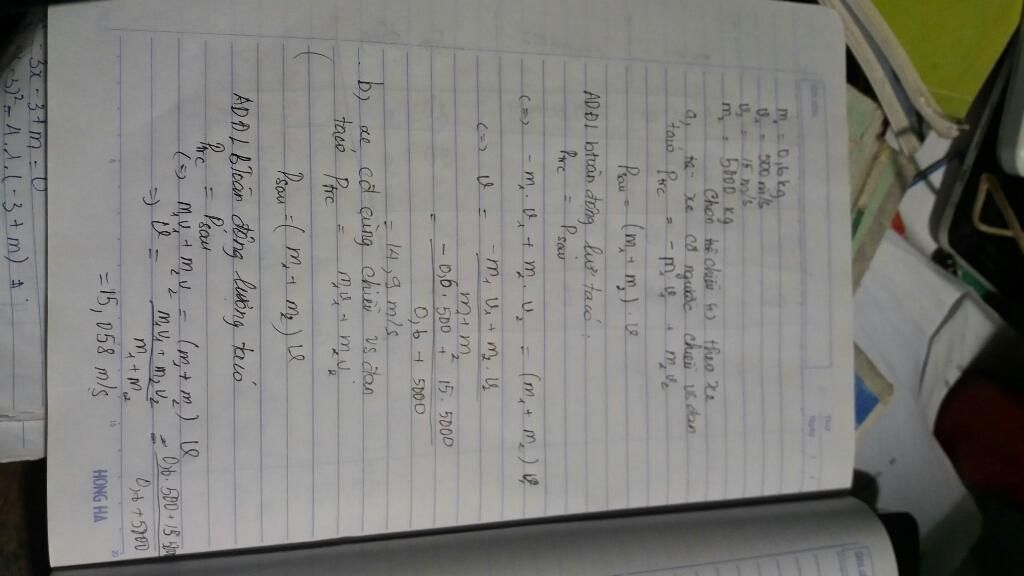 m₁ = 0,6 kg
v₁ = 500 m/s
v₂ = 15 m/s
m₂ = 5000 kg
Chọn tđ chiều (+) theo xe
a, xe cđ ngược chiều vs đạn
ta có Ptrc = - m₁v₁ + m₂v₂
Psau = (m₁ + m₂) . v
ADĐL btoàn động lượ ta có:
Ptrc = Psau
<=> - m₁ . v₁ + m₂ . v₂ = (m₁ + m₂) v
<=> v = - m₁ v₁ + m₂ . v₂
m₁ + m₂
= - 0,6 . 500 + 15 . 5000
0,6 + 5000
= 14,9 m/s
b, xe cđ cùng chiều vs đạn
ta có Ptrc = m₁v₁ + m₂v₂
Psau = (m₁ + m₂) v
ADĐL btoàn động lượng ta có
Ptrc = Psau
<=> m₁v₁ + m₂v₂ = (m₁ + m₂) v
=> v = m₁v₁ + m₂v₂ = 0,6 . 500 + 15 . 5000
m₁ + m₂ 0,6 + 5000
= 15,058 m/s
HONG HA
3x - 3 + m = 0
(-3 + m)